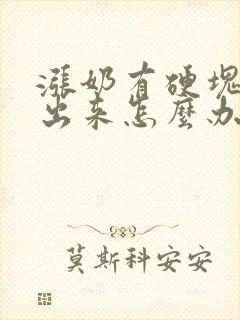 漲奶有硬塊
出來怎麼办
莫斯科安安